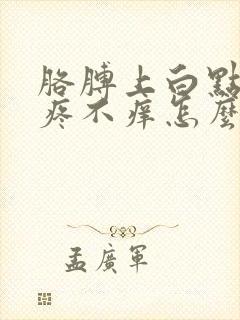 胳膊上白點
疼不痒怎麼
孟廣軍